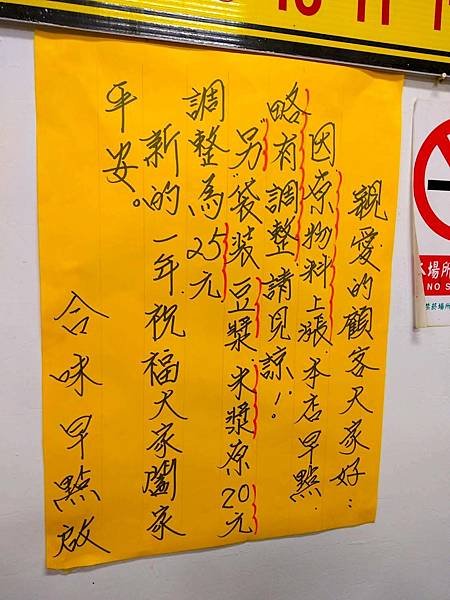 親愛的顧客大家好：
因原物料上漲．本店早點．
略有調整．請見諒！。
另"袋裝豆漿．米漿原20元
調整為25元
新的一年．祝福大家闔家
平安。
合味早點啟
本場所
NO S
禁菸場所